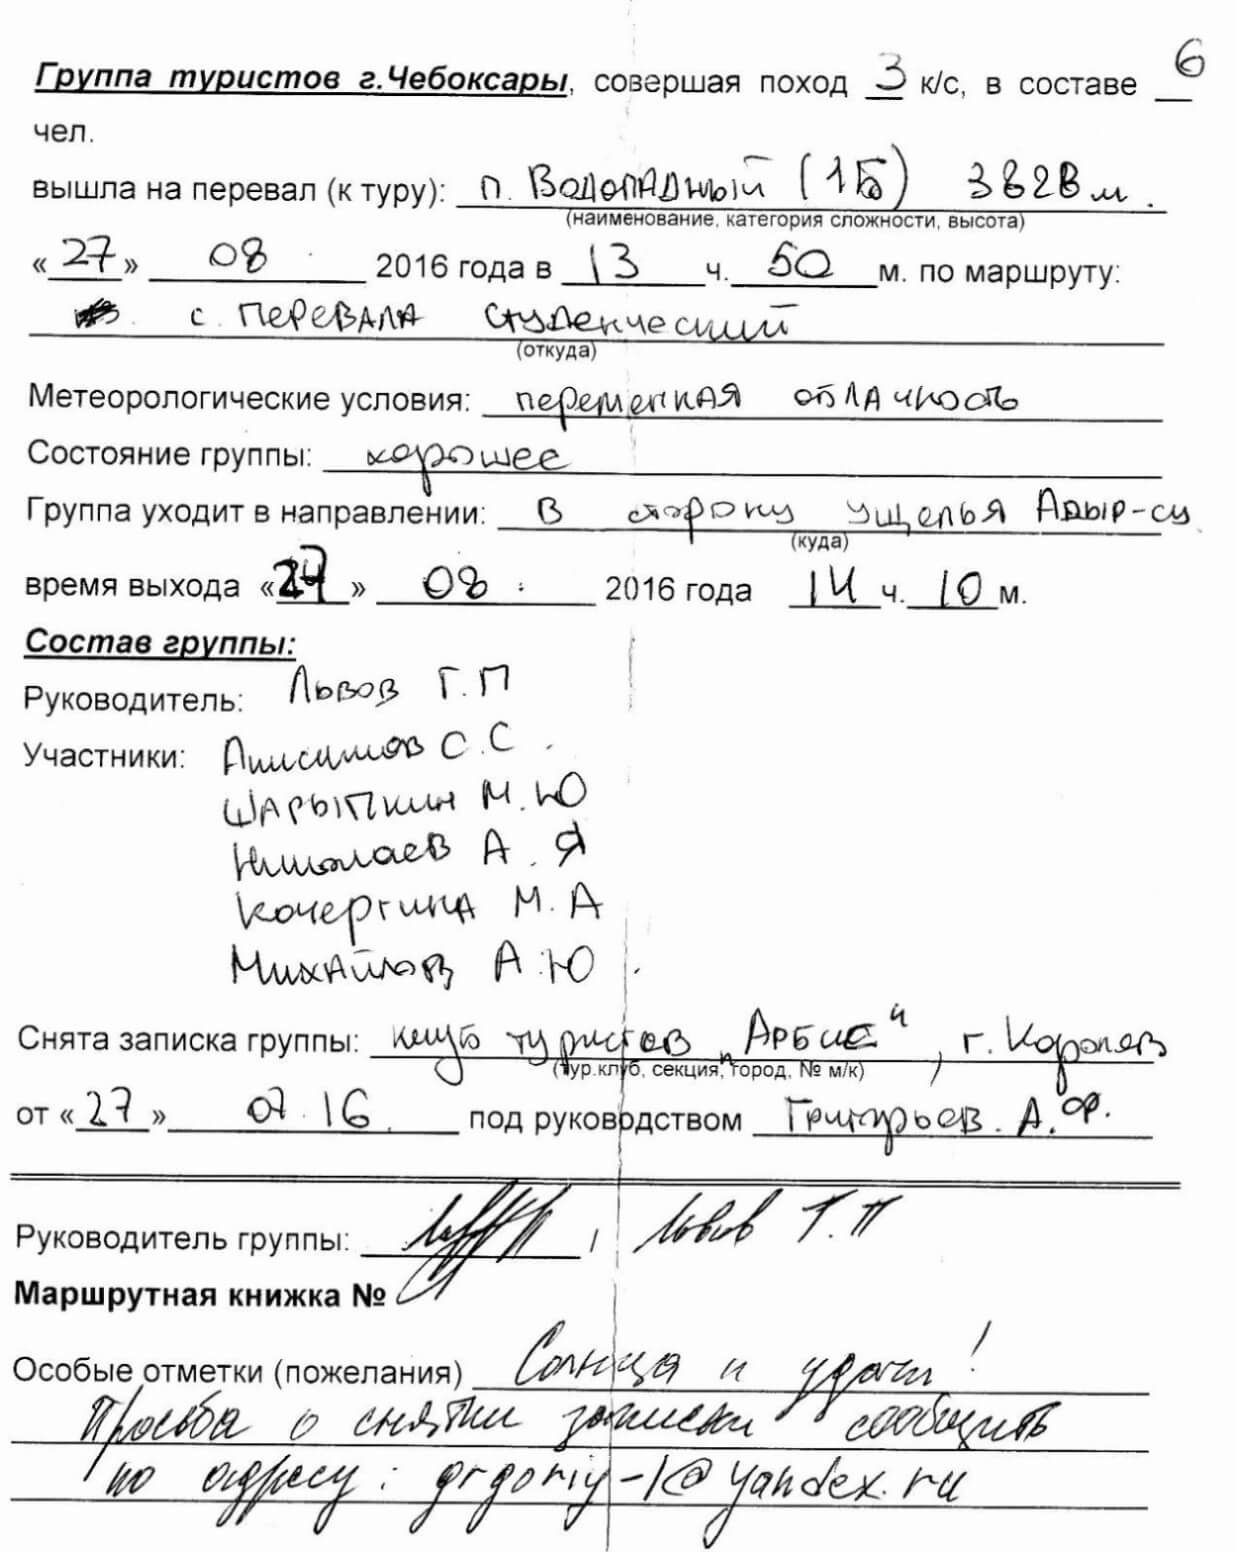 Группа туристов г.Чебоксары, совершая поход 3 к/с, в составе 6
чел.
вышла на перевал (к туру): п. Водопадный (1Б) 3828 м.
(наименование, категория сложности, высота)
«27» 08 2016 года в 13 ч. 50 м. по маршруту:
с перевала Студенческий
(откуда)
Метеорологические условия: переменная облачность
Состояние группы: хорошее
Группа уходит в направлении: в сторону ущелья Адыр-су
(куда)
время выхода «27» 08 2016 года 14 ч. 10 м.
Состав группы:
Руководитель: Львов Г.П
Участники: Анисимов С.С.
Шарыпкин М.Ю
Николаев А.Я
Кочергина М.А
Михайлов А.Ю.
Снята записка группы: клуб туристов "Арбис", г. Королев
(тур.клуб, секция, город, № м/к)
от «27» 07.16. под руководством Григорьев А.Ф.
Руководитель группы: / Львов Г.П
Маршрутная книжка №
Особые отметки (пожелания) Солнца и удачи!
Просьба о снятии записки сообщить
по адресу: grgoriy-1@yandex.ru